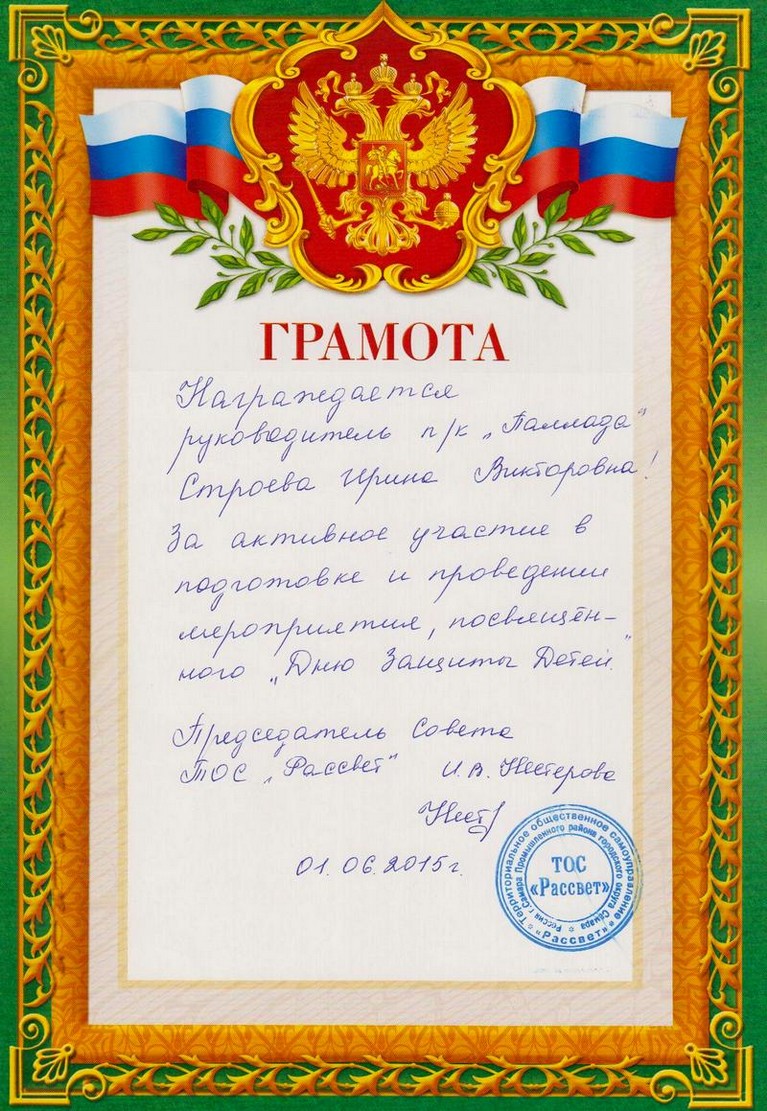 ГРАМОТА
Награждается
руководитель п/к „Паллада"
Строева Ирина Викторовна!
За активное участие в
подготовке и проведении
мероприятия, посвящён-
ного „Дню Защиты Детей"
Председатель Совета
ТОС „Рассвет" И.В. Нестерова
01.06.2015г.
Территориальное общественное самоуправление
«Рассвет»
Россия г.Самара Промышленного района городского округа Самара
ТОС
«Рассвет»